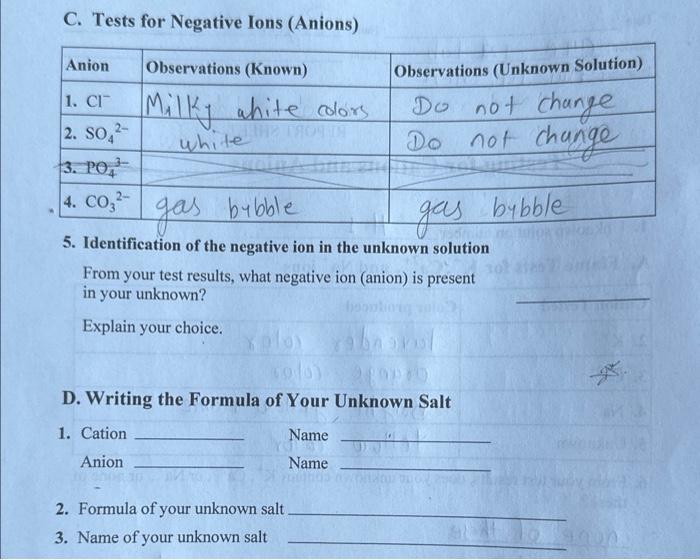 C. Tests for Negative Ions (Anions)
Anion Observations (Known) Observations (Unknown Solution)
1. Cl⁻ Milky white colors Do not change
2. SO₄²⁻ white Do not change
3. PO₄³⁻
4. CO₃²⁻ gas bubble gas bubble
5. Identification of the negative ion in the unknown solution
From your test results, what negative ion (anion) is present
in your unknown?
Explain your choice.
D. Writing the Formula of Your Unknown Salt
1. Cation Name
Anion Name
2. Formula of your unknown salt
3. Name of your unknown salt